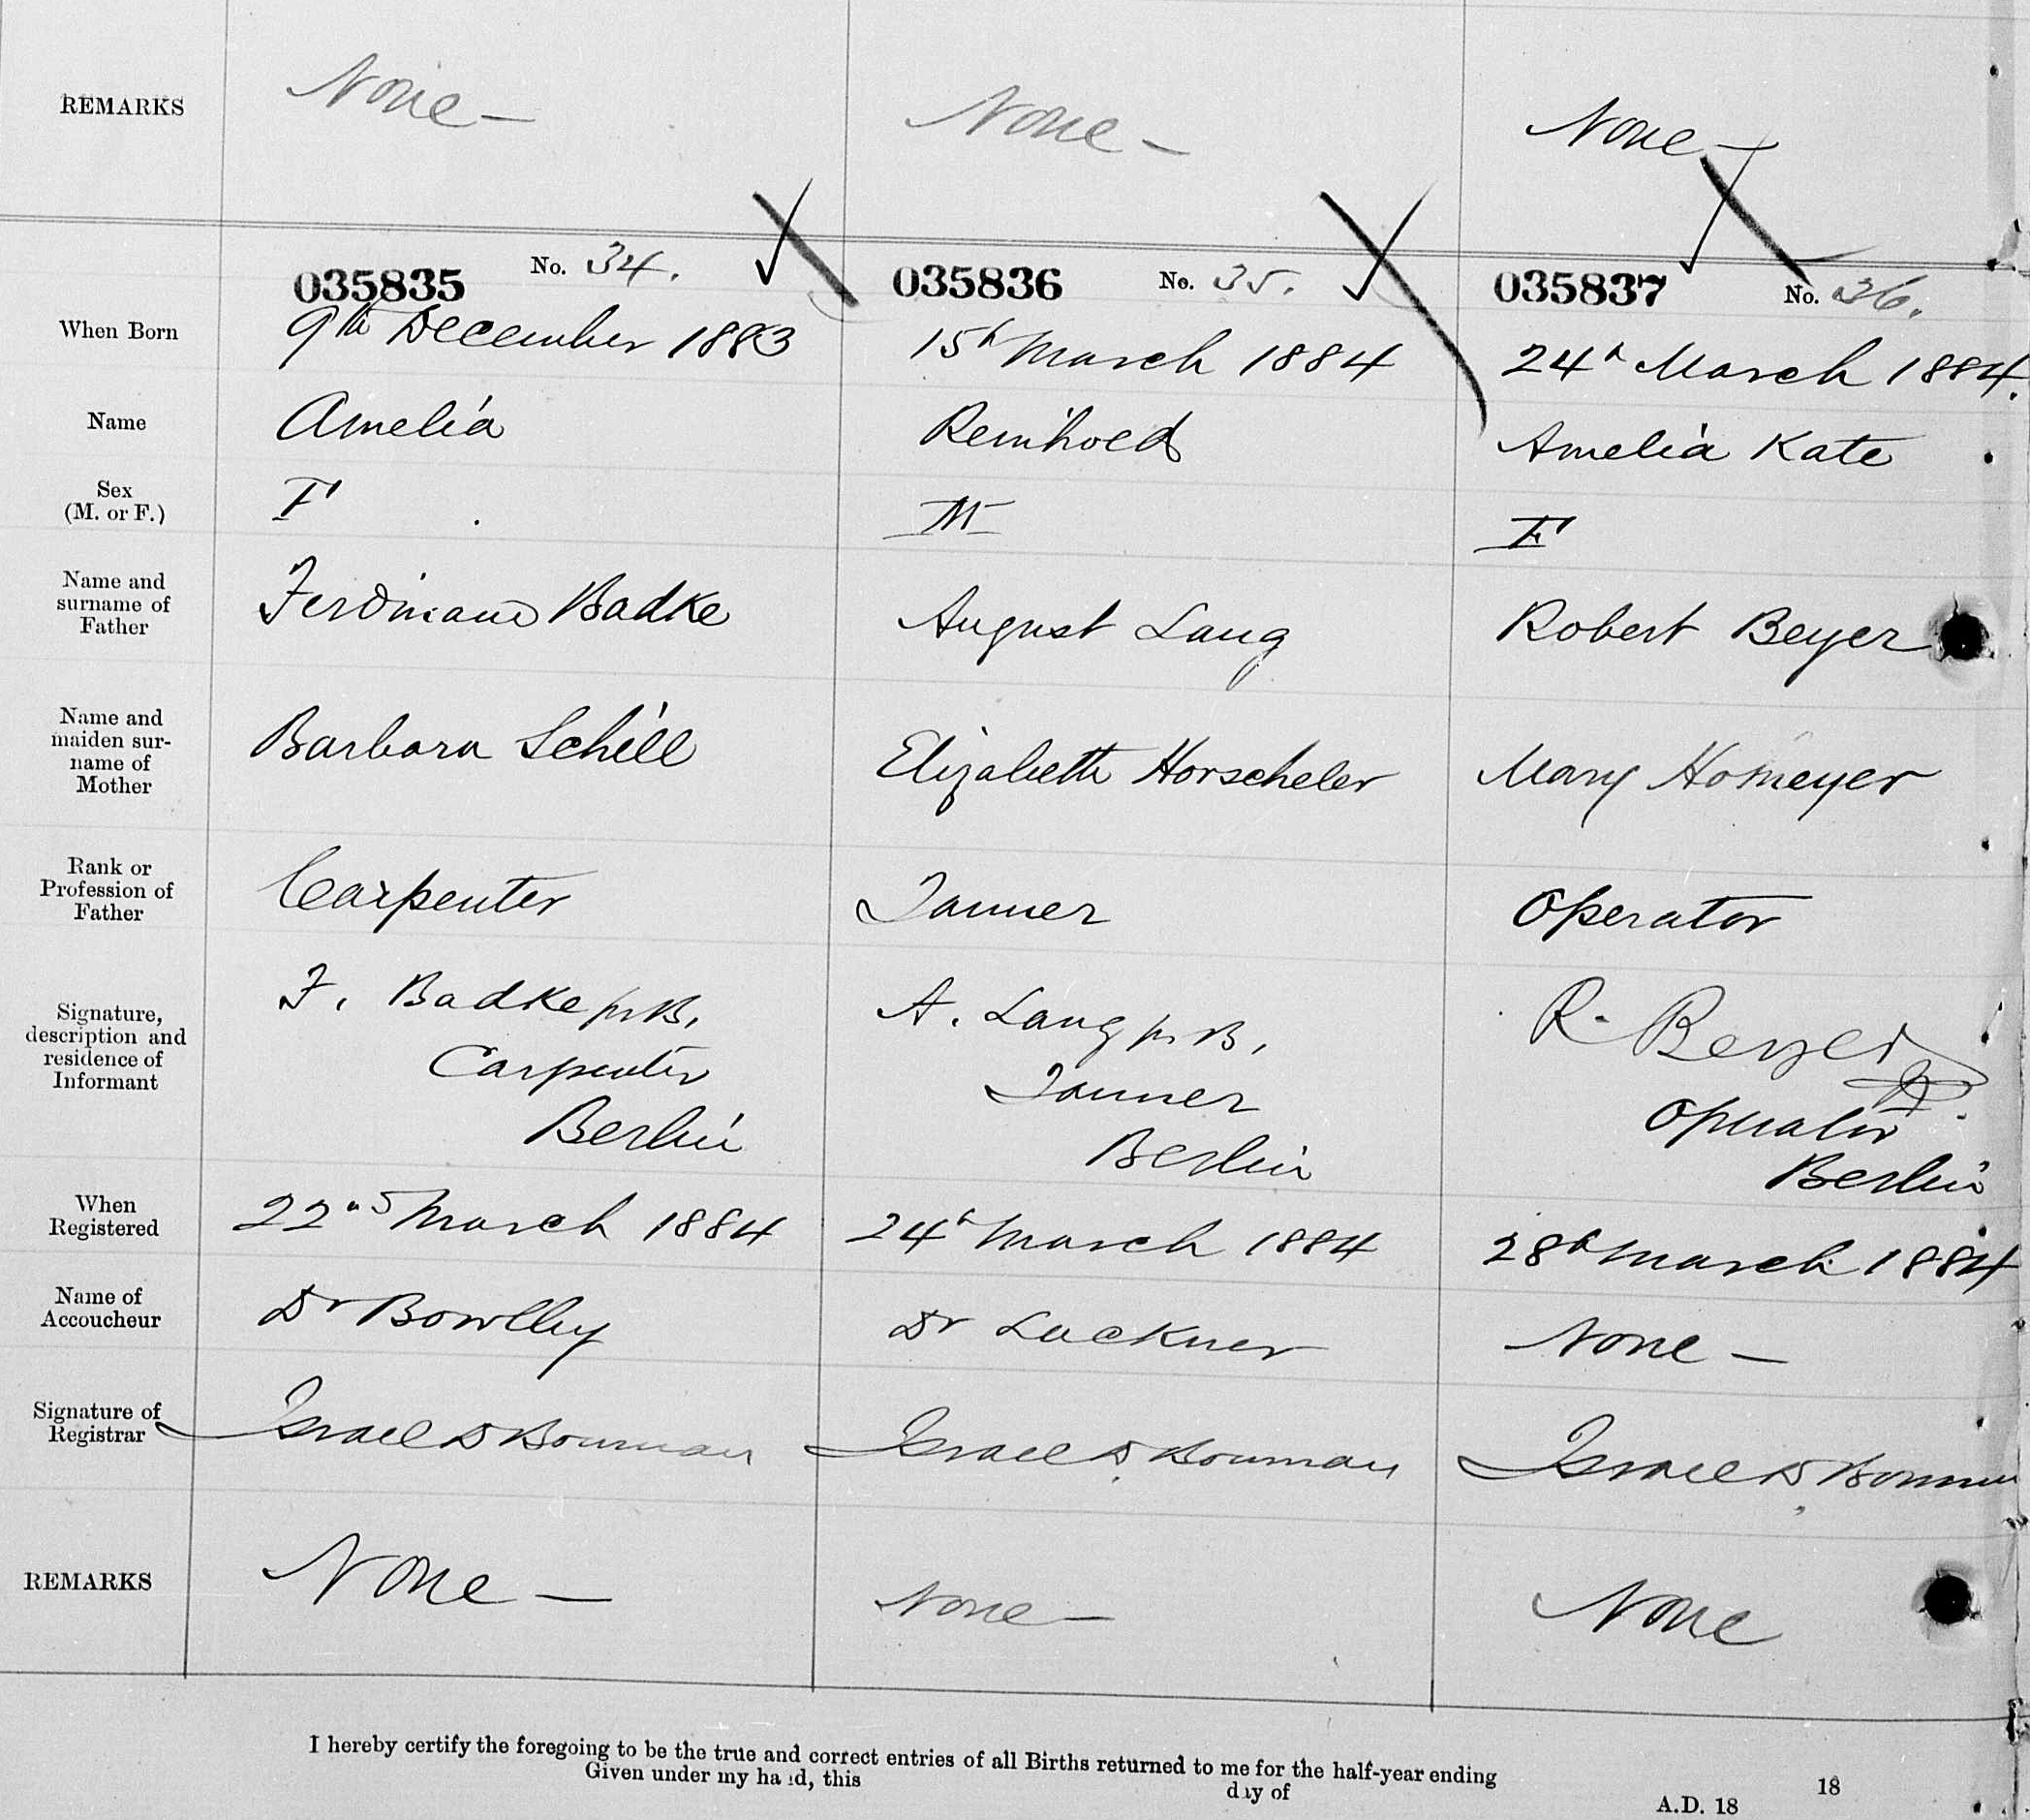 REMARKS None — None — None —
035835 No. 34. 035836 No. 35. 035837 No. 36.
When Born 9th December 1883 15h March 1884 24h March 1884.
Name Amelia Reinhold Amelia Kate
Sex
(M. or F.) F M F
Name and
surname of
Father Ferdinand Badke August Lang Robert Beyer
Name and
maiden sur-
name of
Mother Barbara Schill Elizabeth Horscheler Mary Homeyer
Rank or
Profession of
Father Carpenter Tanner Operator
Signature,
description and
residence of
Informant
F. Badke pr B. A. Lang pr B. R. Beyer
Carpenter Tanner Operator
Berlin Berlin Berlin
When
Registered 22nd March 1884 24h March 1884 28h March 1884
Name of
Accoucheur Dr Bowlby Dr Lackner None —
Signature of
Registrar Israel D Bowman Israel D. Bowman Israel D. Bowman
REMARKS None — None — None
I hereby certify the foregoing to be the true and correct entries of all Births returned to me for the half-year ending 18
Given under my hand, this day of A.D. 18